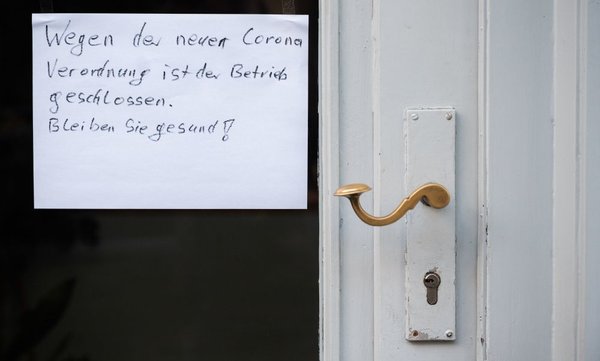 Wegen der neuen Corona
Verordnung ist der Betrieb
geschlossen.
Bleiben Sie gesund!